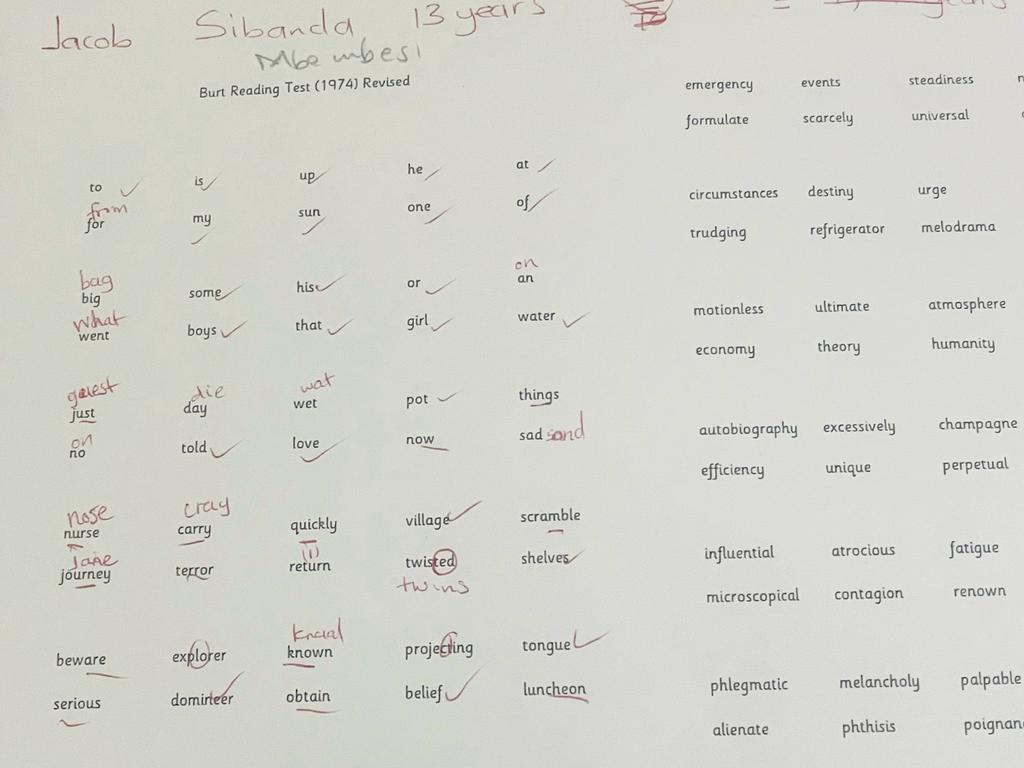 Jacob Sibanda 13 years
Mbembesi
Burt Reading Test (1974) Revised
to is up he at
from
for my sun one of
bag on
big some his or an
what
went boys that girl water
guest die wat
just day wet pot things
on
no told love now sad sand
nose cray
nurse carry quickly village scramble
jane
journey terror return twisted shelves
twins
knaial
beware explorer known projecting tongue
serious domineer obtain belief luncheon
emergency events steadiness
formulate scarcely universal
circumstances destiny urge
trudging refrigerator melodrama
motionless ultimate atmosphere
economy theory humanity
autobiography excessively champagne
efficiency unique perpetual
influential atrocious fatigue
microscopical contagion renown
phlegmatic melancholy palpable
alienate phthisis poignan